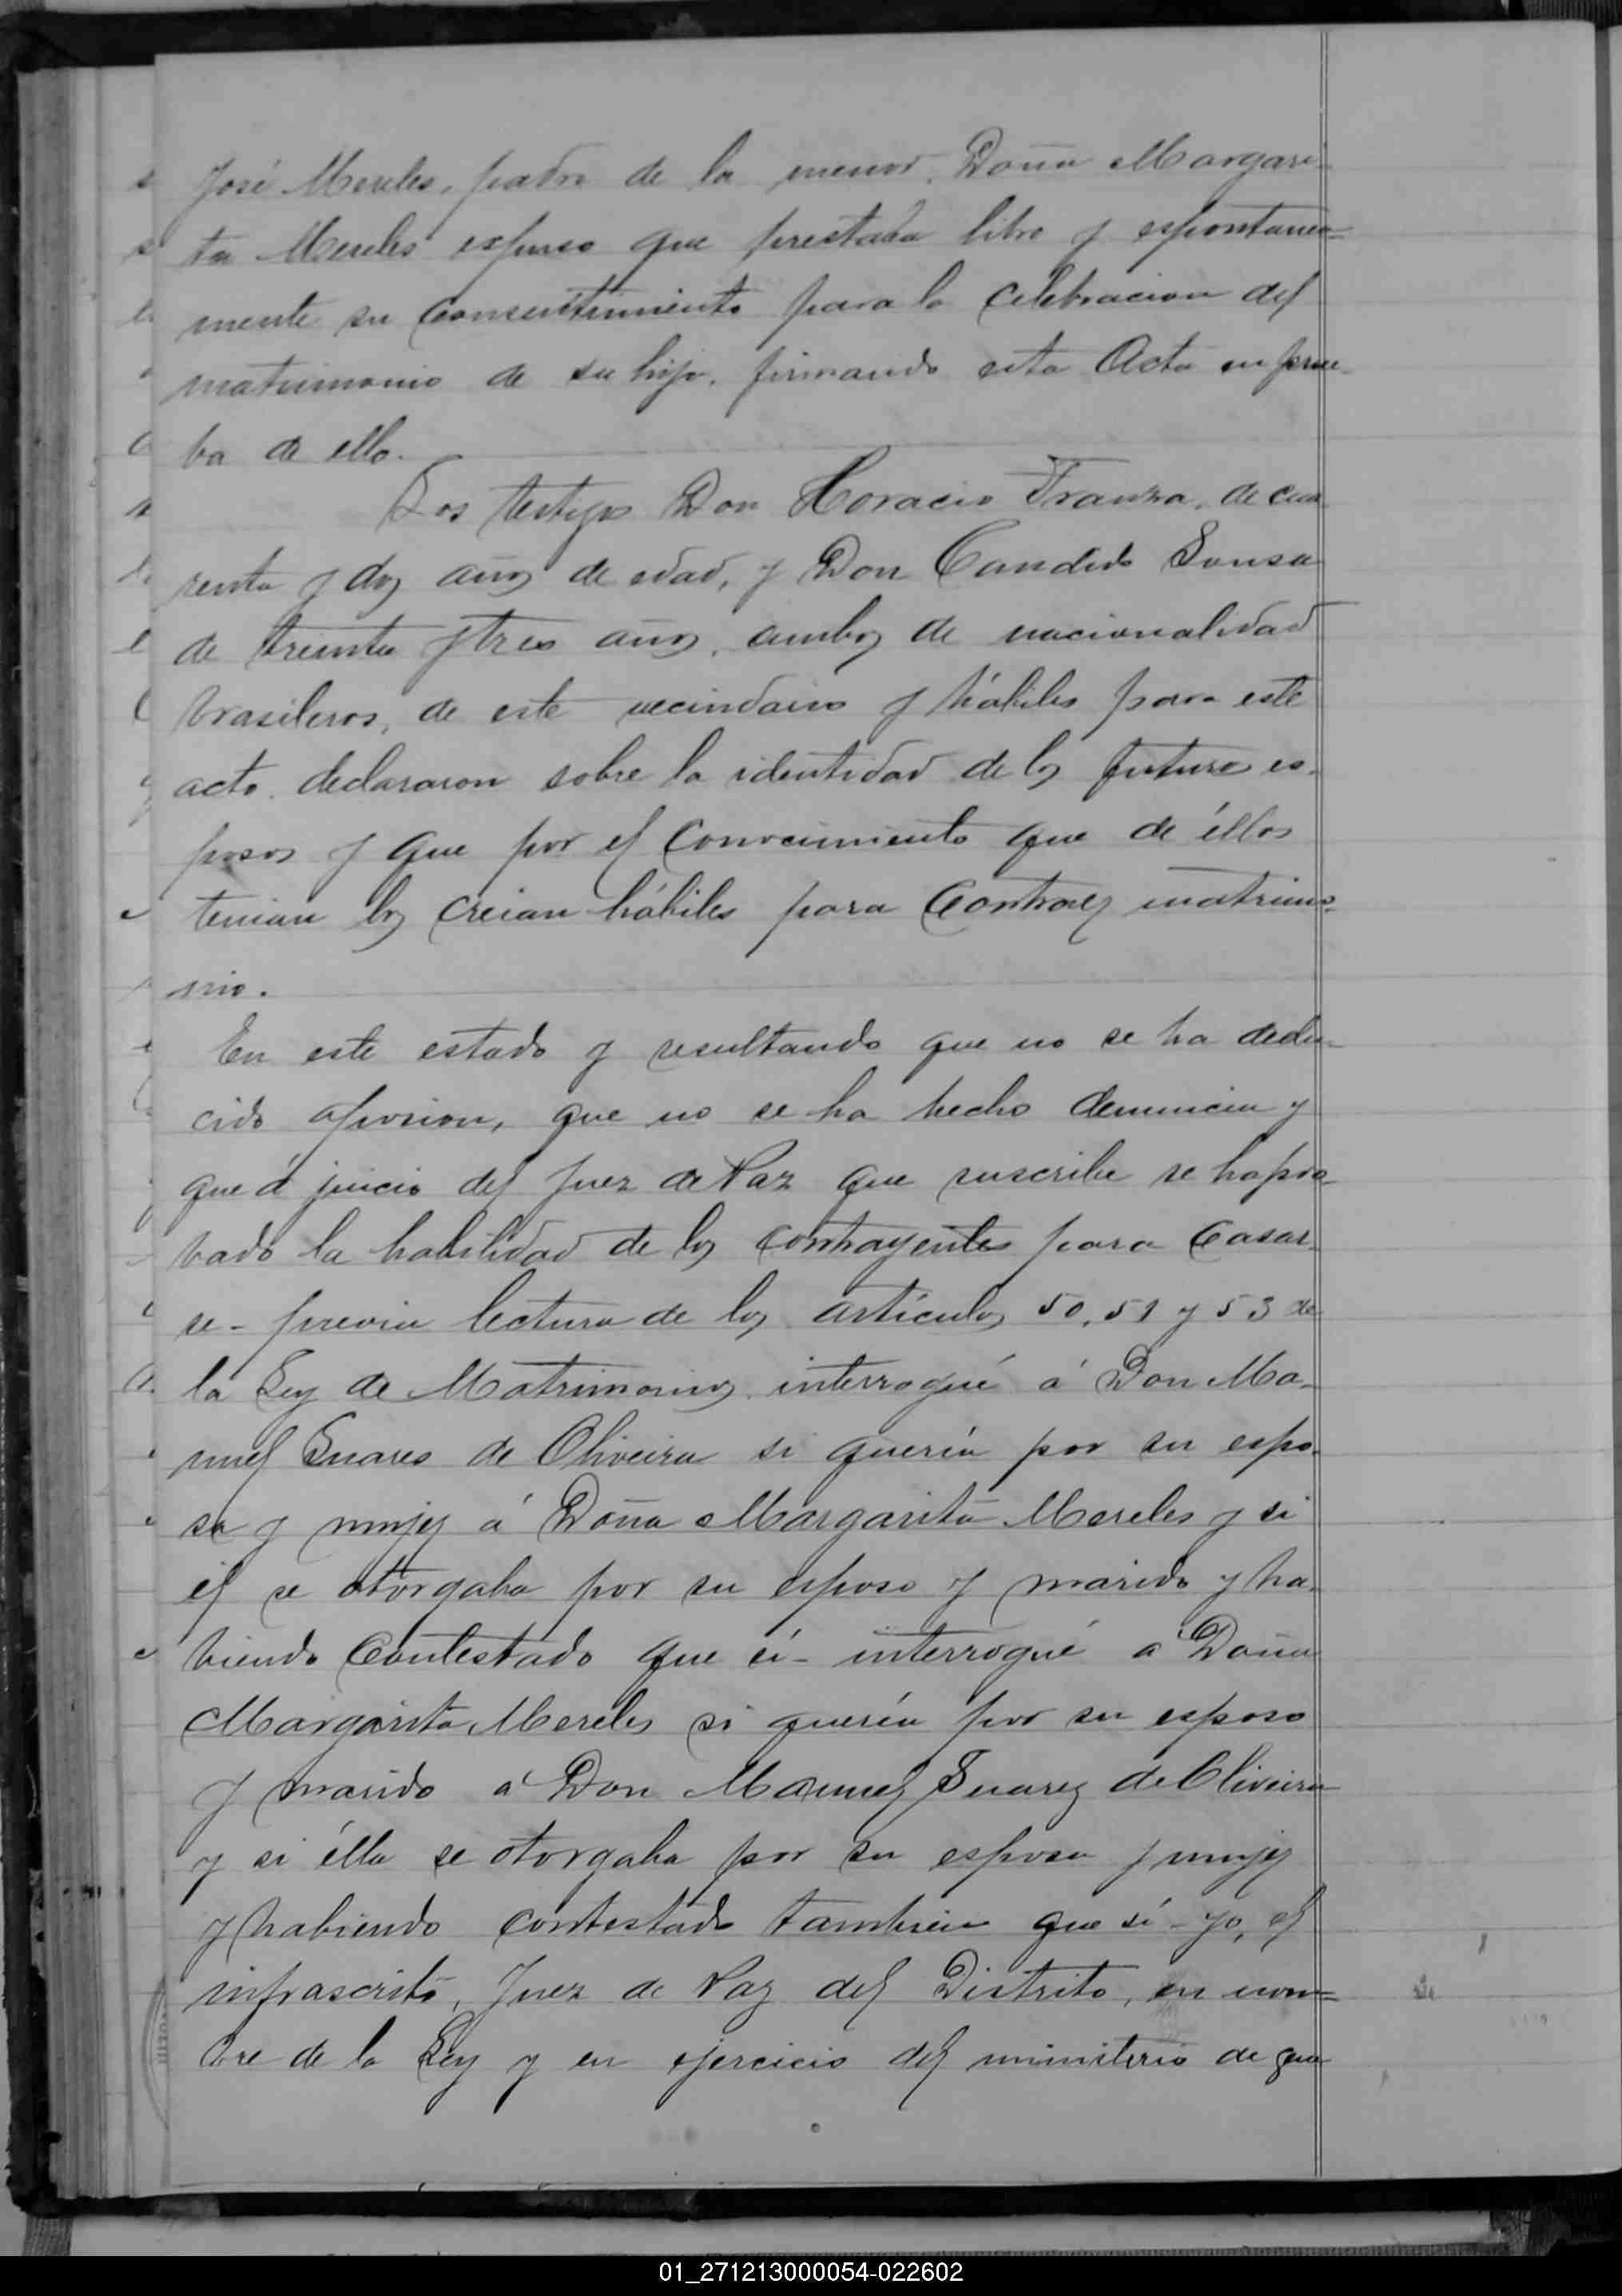 José Mereles, padre de la menor, Doña Margari-
ta Mereles expuso que prestaba libre y espontanea-
mente su consentimiento para la celebracion del
matrimonio de su hija, firmando esta Acta en prue-
ba de ello.
Los testigos Don Horacio Franza, de cua
renta y dos años de edad, y Don Candido Sousa
de treinta y tres años, ambos de nacionalidad
brasileros, de este vecindario y hábiles para este
acto, declararon sobre la identidad de los futuros es-
posos y que por el conocimiento que de éllos
tenian los creian hábiles para contraer matrimo-
nio.
En este estado y resultando que no se ha dedu-
cido oposicion, que no se ha hecho denuncia y
que á juicio del Juez de Paz que suscribe se ha pro-
bado la habilidad de los contrayentes para casar-
se - previa lectura de los artículos 50, 51 y 53 de
la Ley de Matrimonios interrogué á Don Ma-
nuel Suares de Oliveira si quería por su espo-
sa y mujer á Doña Margarita Mereles y si
él se otorgaba por su esposo y marido y ha-
biendo contestado que sí - interrogué a Doña
Margarita Mereles si quería por su esposo
y marido á Don Manuel Suarez de Oliveira
y si élla se otorgaba por su esposa y mujer
y habiendo contestado tambien que sí - yo, el
infrascrito, Juez de Paz del Distrito, en nom-
bre de la Ley y en ejercicio del ministerio de que
01_271213000054-022602